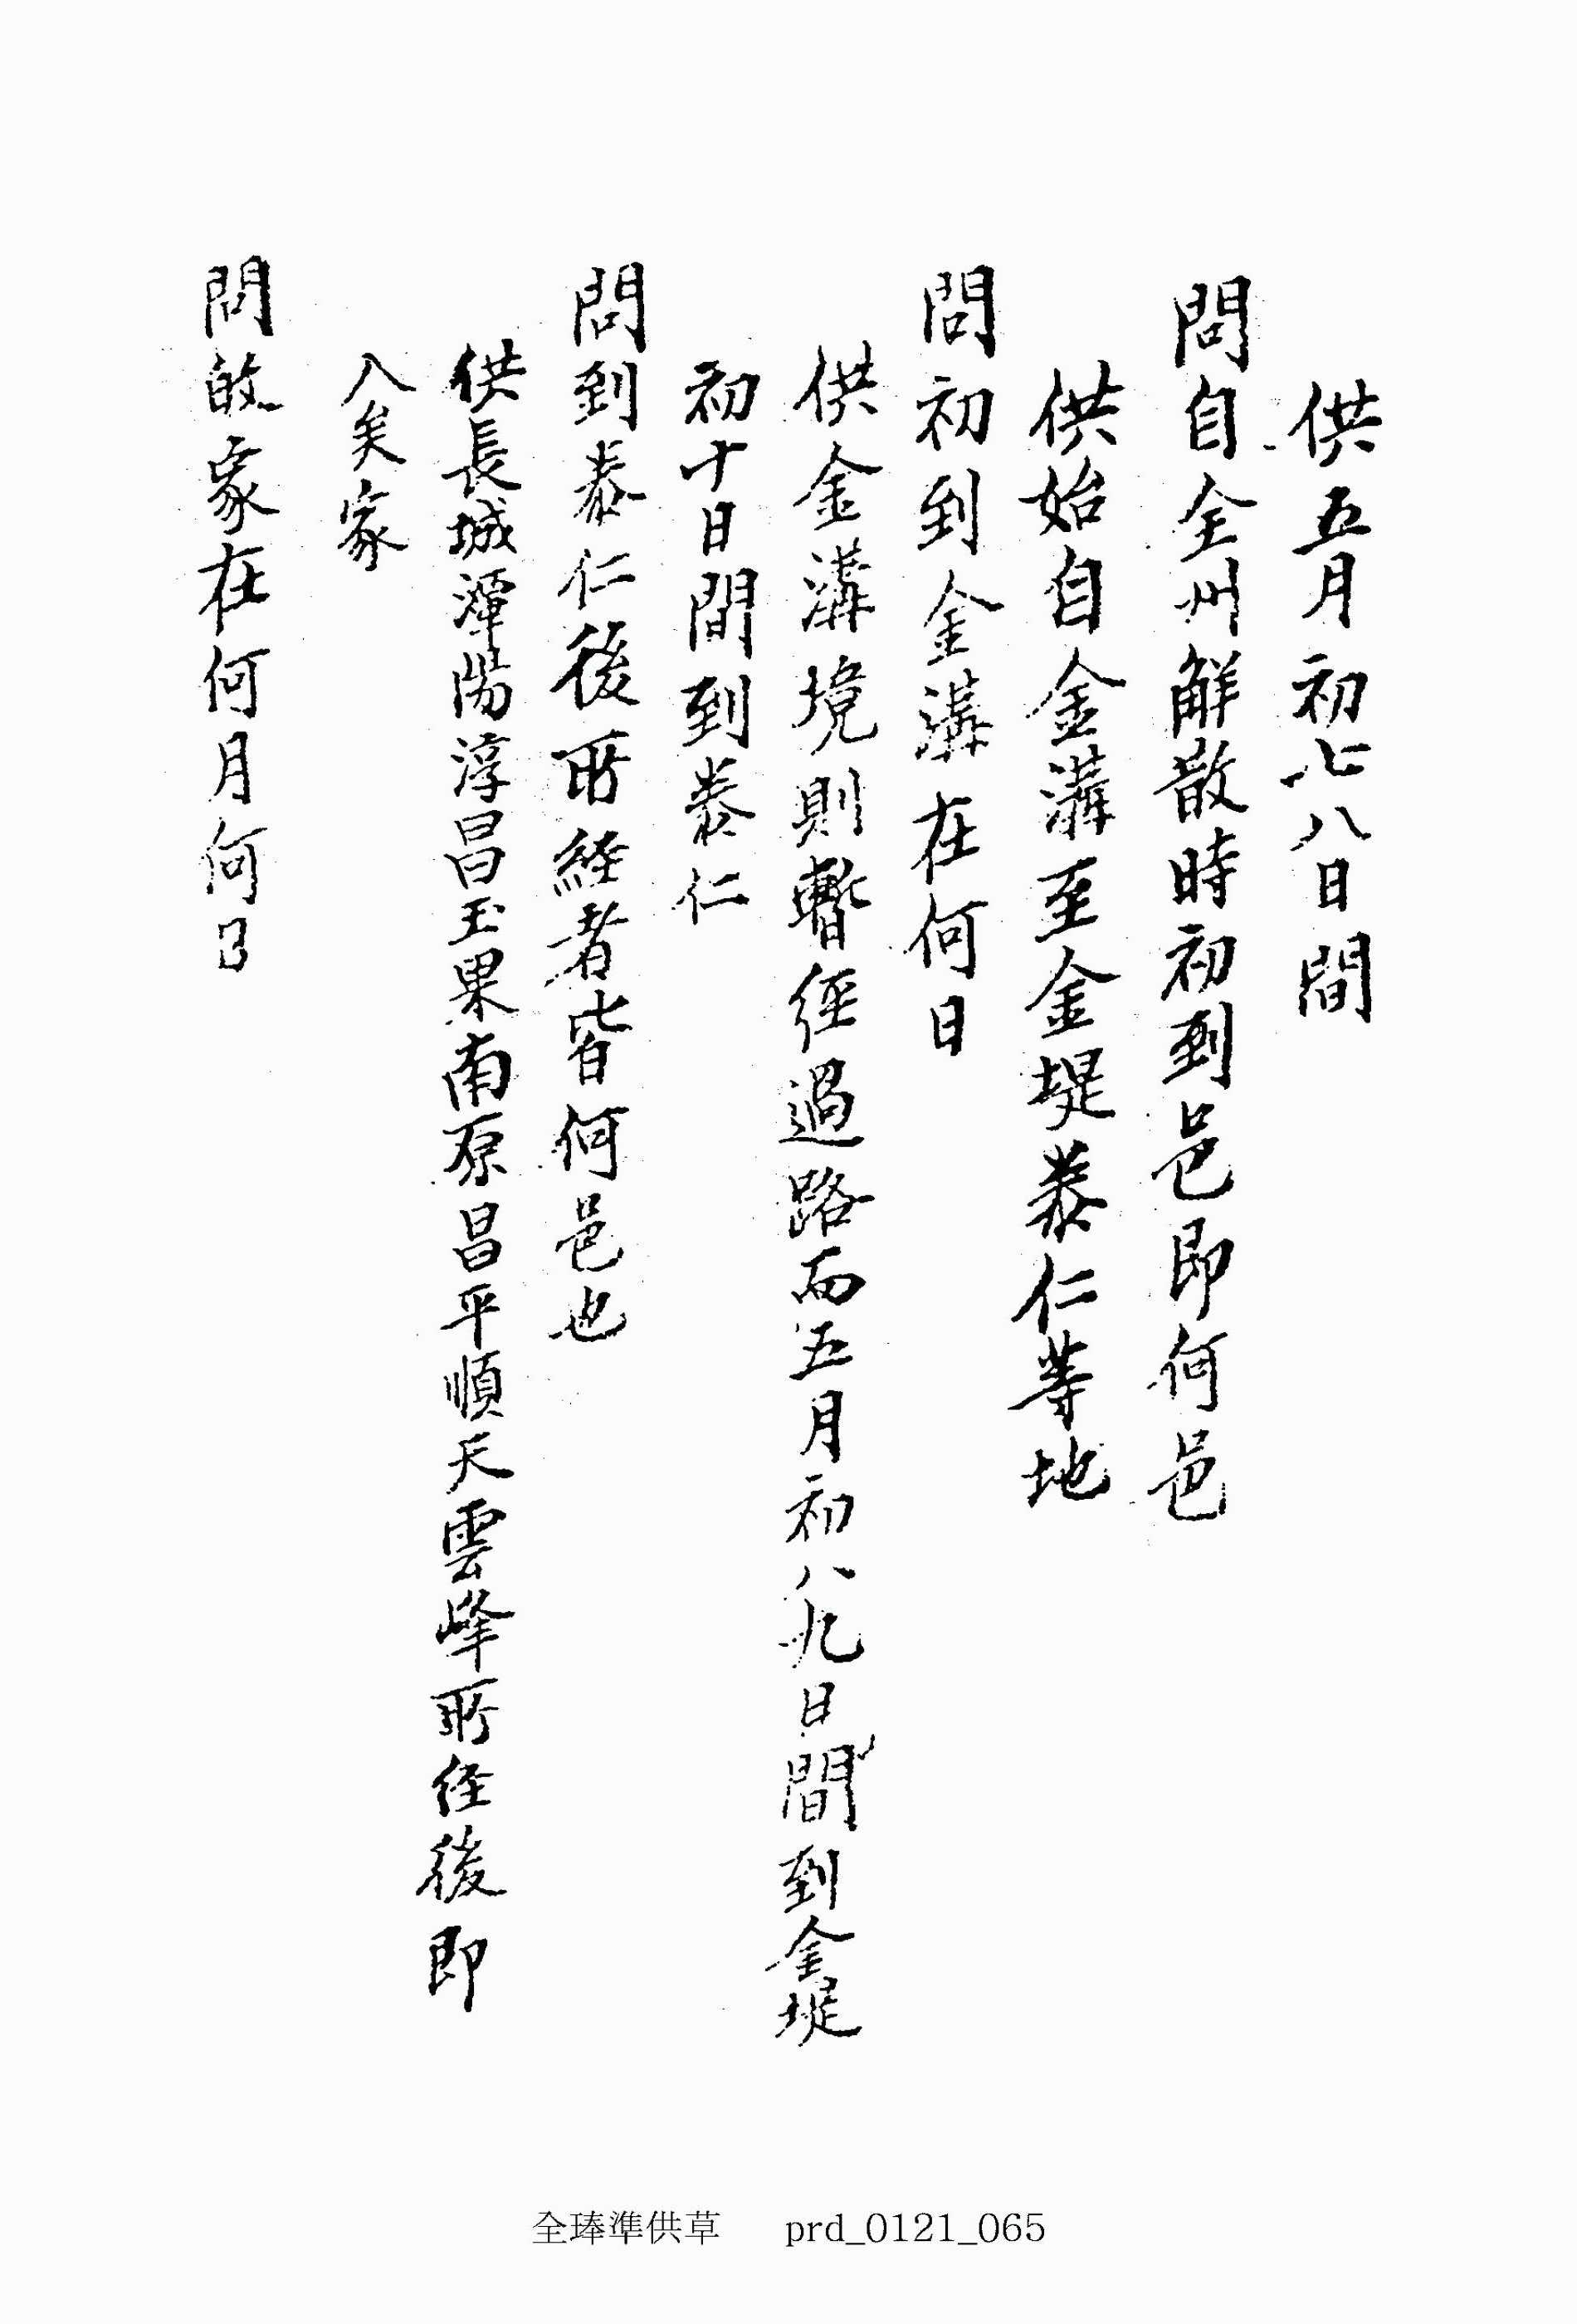 供五月初七八日間
問自全州解散時初到邑即何邑
供始自金溝至金堤泰仁等地
問初到金溝在何日
供金溝境則暫徑過路而五月初八九日間到金堤
初十日間到泰仁
問到泰仁後所経者皆何邑也
供長城潭陽淳昌玉果南原昌平順天雲峰所徑後即
入矣家
問的家在何月何日
全琫準供草 prd_0121_065